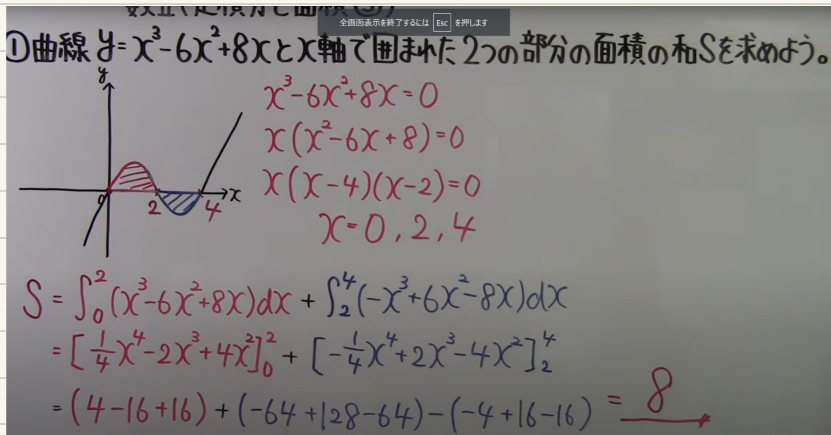 数Ⅱ(定積分と面積③)
全画面表示を終了するには Esc を押します
①曲線 y=x³-6x²+8xとx軸で囲まれた2つの部分の面積の和Sを求めよう。
y
x³-6x²+8x=0
x(x²-6x+8)=0
x(x-4)(x-2)=0
x=0,2,4
0 2 4 x
S=∫₀²(x³-6x²+8x)dx+∫₂⁴(-x³+6x²-8x)dx
=[1/4x⁴-2x³+4x²]₀²+[-1/4x⁴+2x³-4x²]₂⁴
=(4-16+16)+(-64+128-64)-(-4+16-16)=8